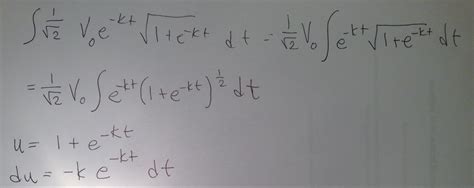 ∫ 1/√2 V₀e^(-kt) √(1+e^(-kt)) dt = 1/√2 V₀ ∫ e^(-kt) √(1+e^(-kt)) dt
= 1/√2 V₀ ∫ e^(-kt) (1+e^(-kt))^(1/2) dt
u = 1 + e^(-kt)
du = -k e^(-kt) dt